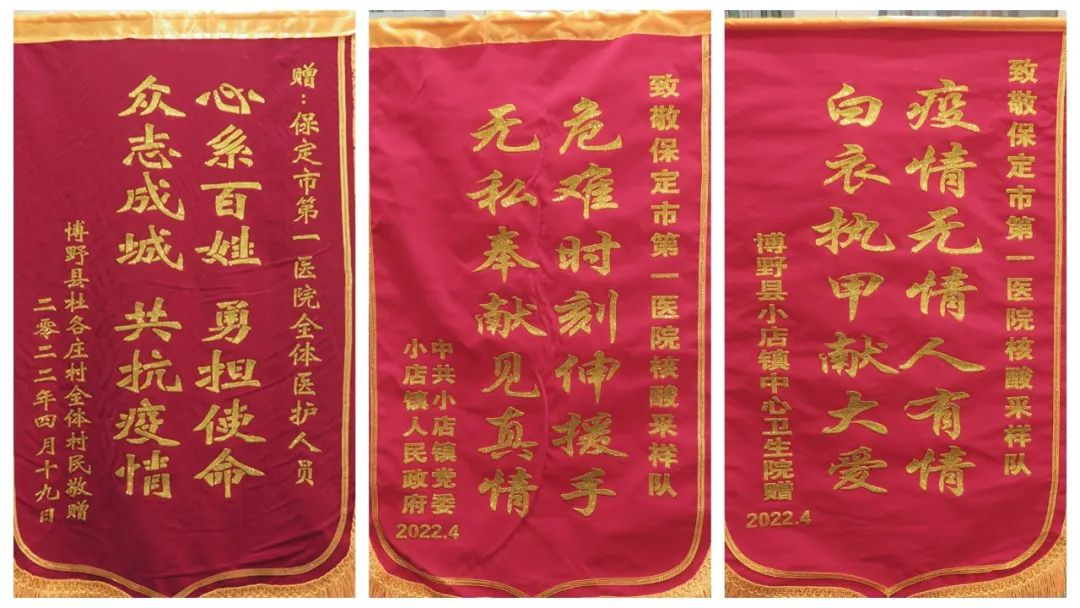 赠：保定市第一医院全体医护人员
心系百姓 勇担使命
众志成城 共抗疫情
博野县杜各庄村全体村民敬赠
二零二二年四月十九日
致敬保定市第一医院核酸采样队
危难时刻伸援手
无私奉献见真情
中共小店镇党委
小店镇人民政府
2022.4
致敬保定市第一医院核酸采样队
疫情无情人有情
白衣执甲献大爱
博野县小店镇中心卫生院赠
2022.4